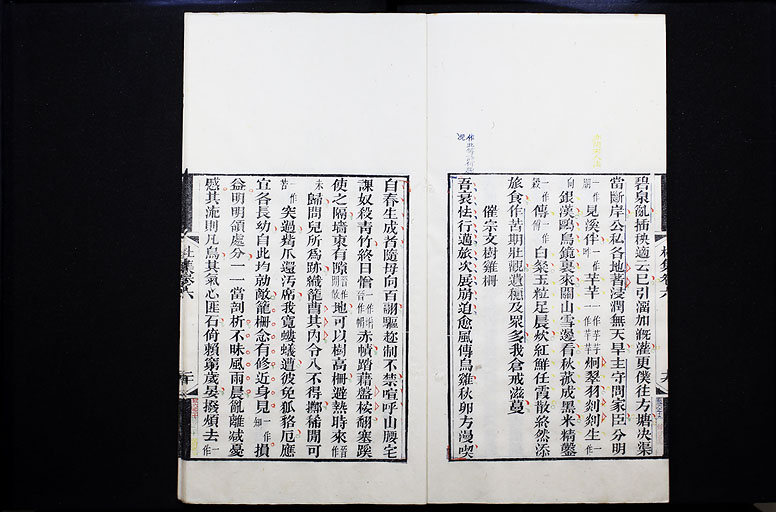 碧泉亂插秧適云已引溜加溉灌更僕往方塘決渠
當斷岸公私各地著浸潤無天旱主守問家臣分明
一作朋見溪伴一作畔芊芊一作芊芊炯翠羽剡剡生一作
向銀漢鷗鳥鏡裏來關山雪邊看秋菰成黑米精鑿
一作穀傳一作傅白粲玉粒足晨炊紅鮮任霞散終然添
旅食作苦期壯觀遺穗及眾多我倉戒滋蔓
催宗文樹雞柵
吾衰怯行邁旅次展崩迫愈風傳烏雞秋卵方漫喫
自春生成者隨母向百翮驅趁制不禁喧呼山腰宅
課奴殺青竹終日憎赤幘踏藉盤桉翻塞蹊
使之隔墻東有隙地可以樹高柵避熱時來
未歸問兒所為跡織籠曹其內令入不得擲稀間可
一作苦突過觜爪還汚席我寬螻蟻遭彼免狐貉厄應
宜各長幼自此均勍敵籠柵念有修近身見一作知損
益明明領處分一一當剖析不昧風雨晨亂離減憂
慼其流則凡鳥其氣心匪石倚賴窮歲晏撥煩去一作
杜集卷六